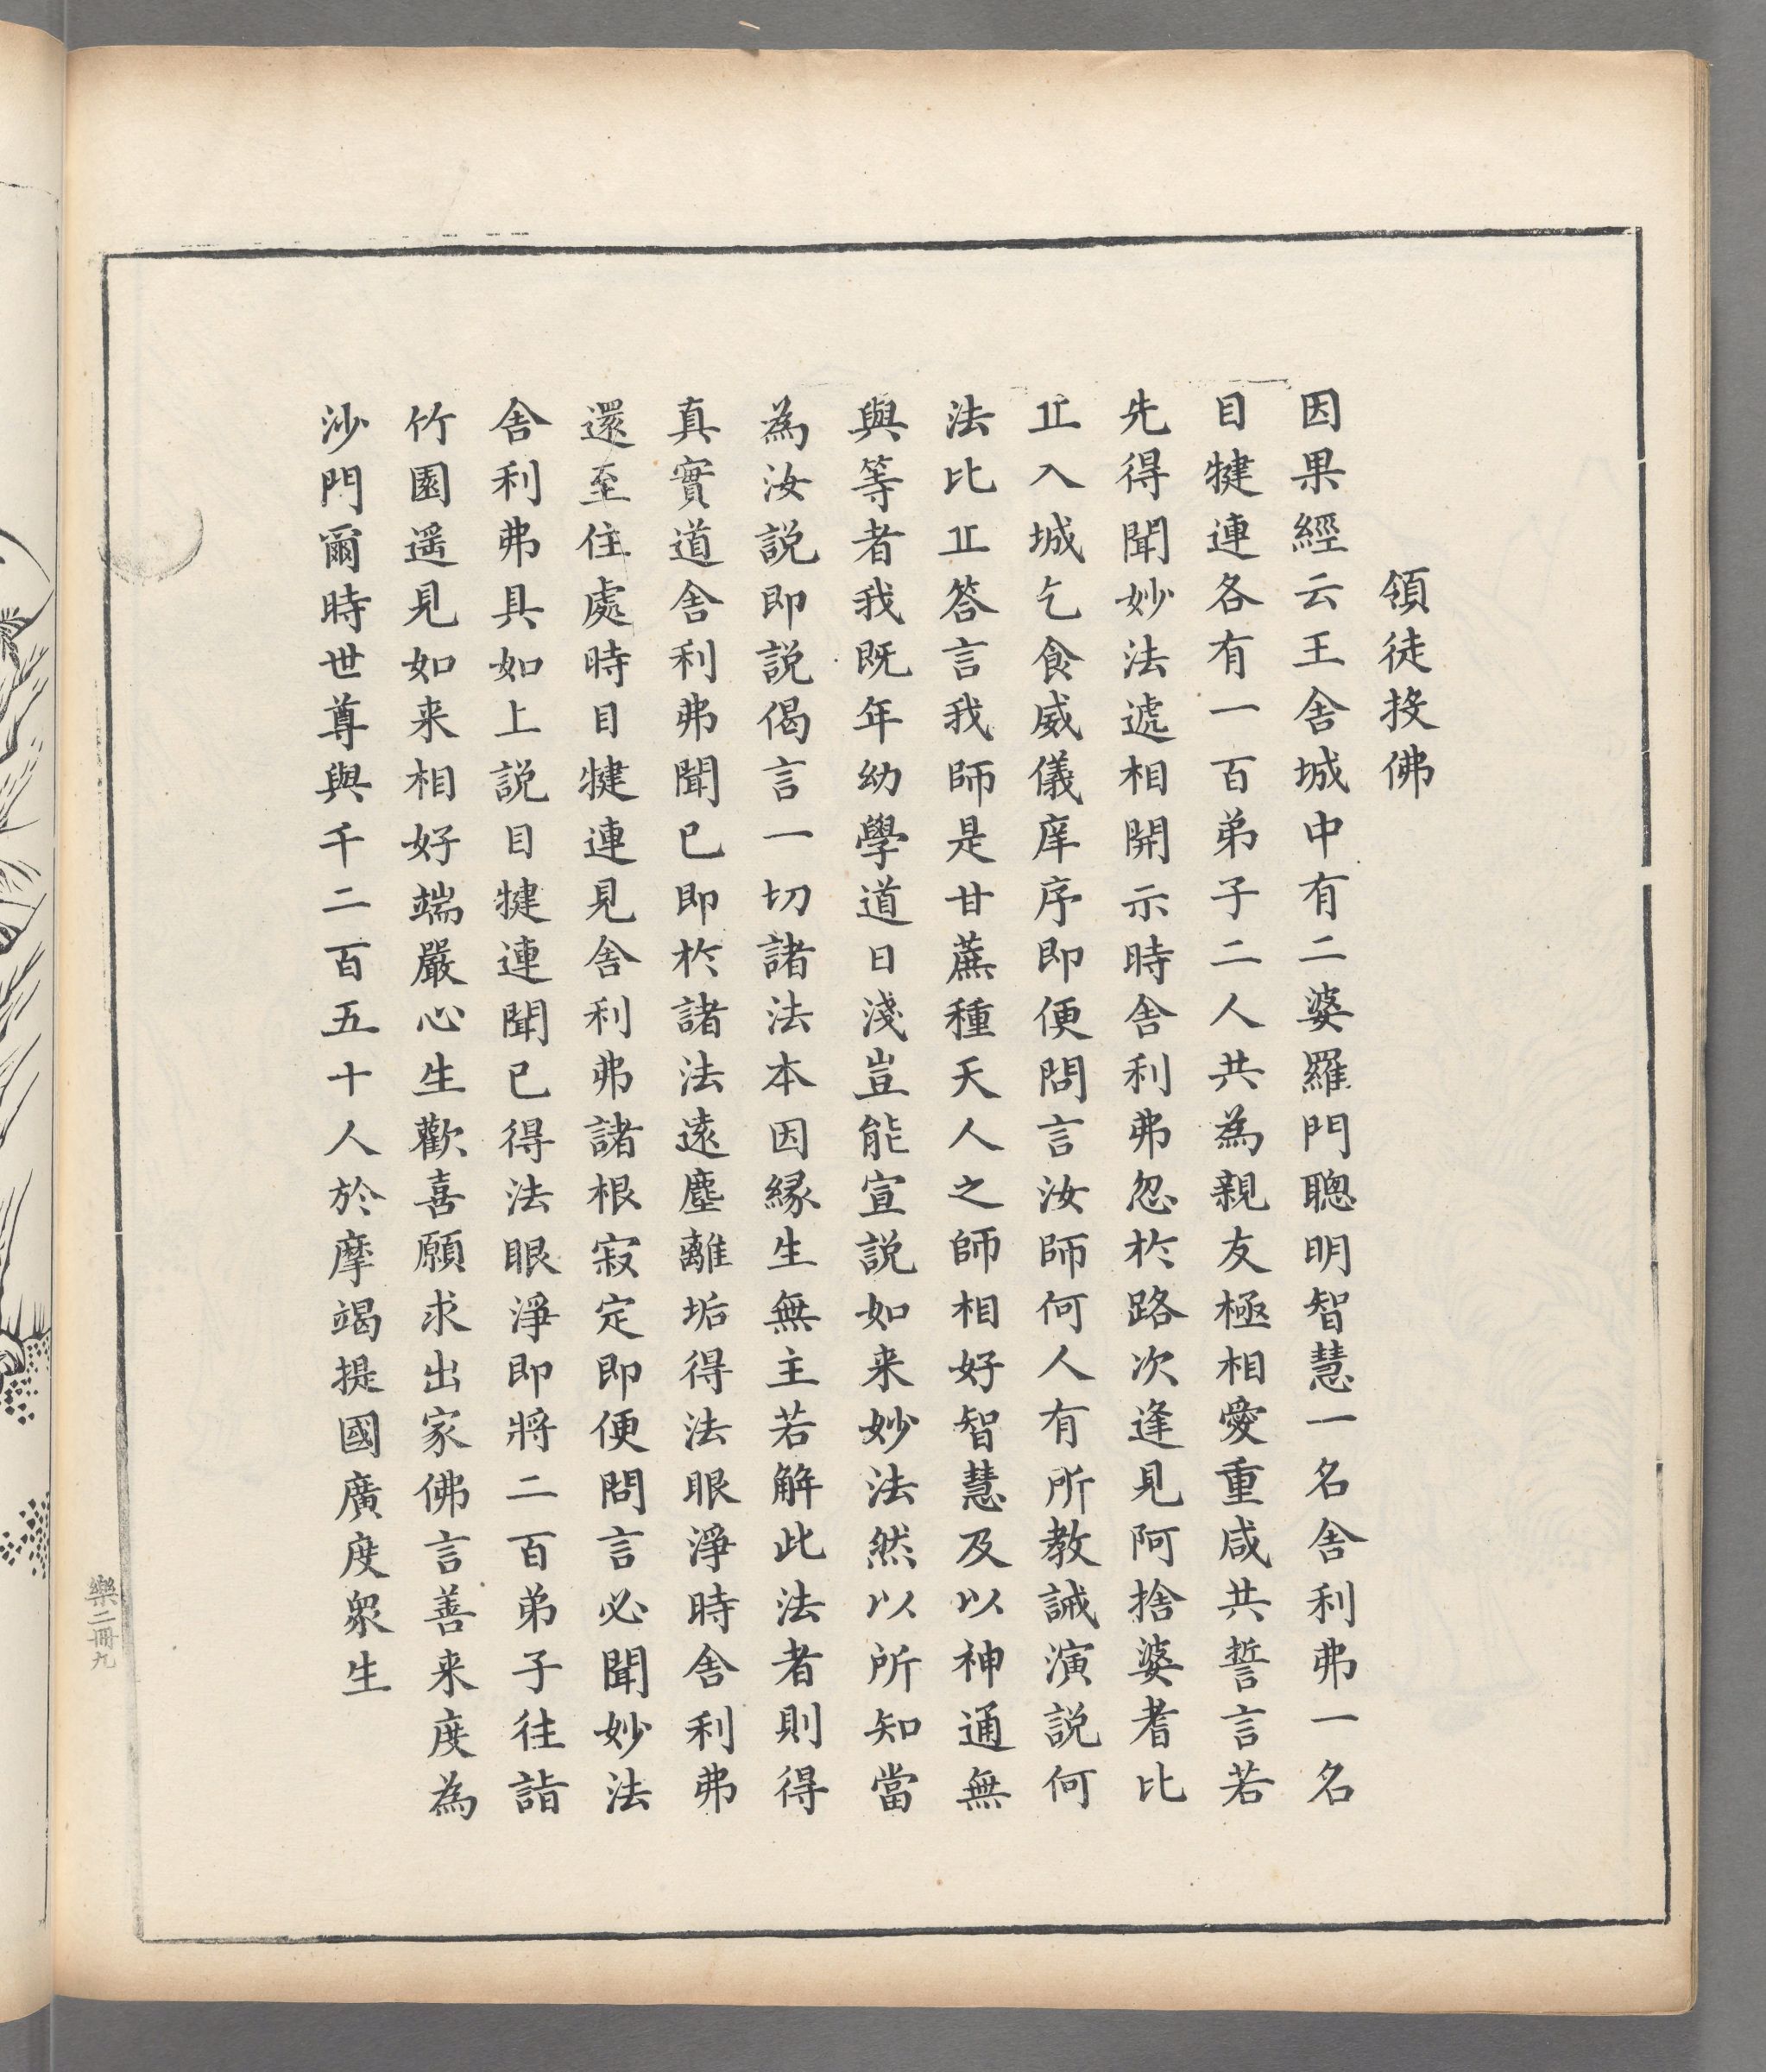 領徒投佛
因果經云王舍城中有二婆羅門聰明智慧一名舍利弗一名
目犍連各有一百弟子二人共為親友極相愛重咸共誓言若
先得聞妙法遞相開示時舍利弗忽於路次逢見阿捨婆耆比
丘入城乞食威儀庠序即便問言汝師何人有所教誡演説何
法比丘答言我師是甘蔗種天人之師相好智慧及以神通無
與等者我既年幼學道日淺豈能宣説如来妙法然以所知當
為汝説即説偈言一切諸法本因緣生無主若解此法者則得
真實道舍利弗聞已即於諸法遠塵離垢得法眼淨時舍利弗
還至住處時目犍連見舍利弗諸根寂定即便問言必聞妙法
舍利弗具如上説目犍連聞已得法眼淨即將二百弟子往詣
竹園遥見如来相好端嚴心生歡喜願求出家佛言善来度為
沙門爾時世尊與千二百五十人於摩竭提國廣度衆生
樂二冊九